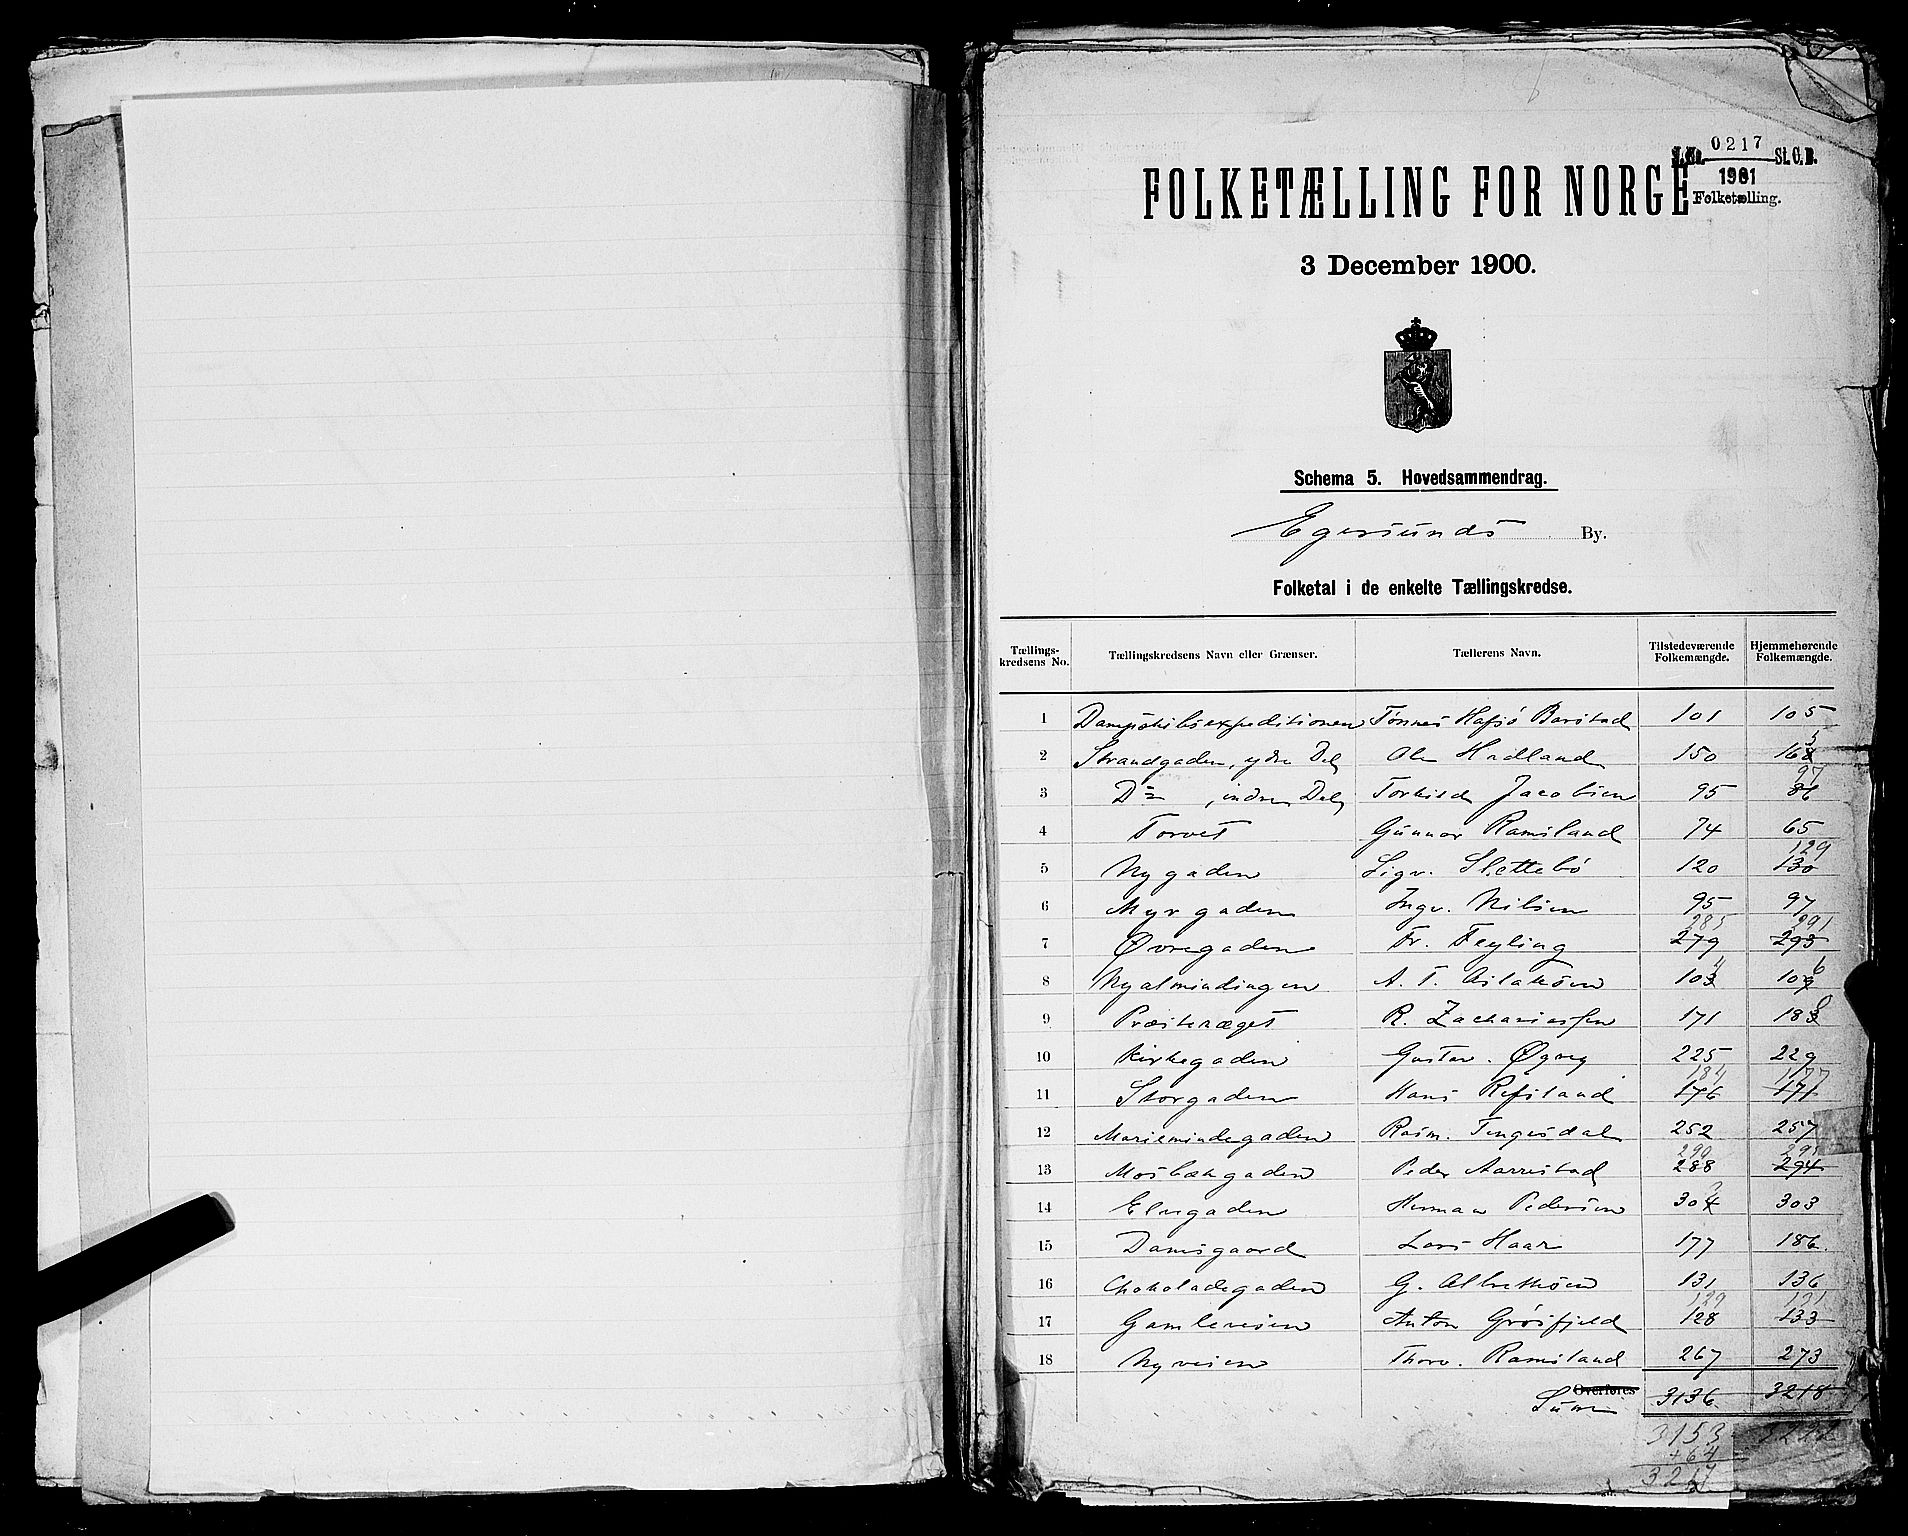 J.No. 0217 St.C.B.
1901
Folketælling.
FOLKETÆLLING FOR NORGE
3 December 1900.
Schema 5. Hovedsammendrag.
Egersunds By.
Folketal i de enkelte Tællingskredse.
Tællings-kredsens No. Tællingskredsens Navn eller Grænser. Tællerens Navn. Tilstedeværende Folkemængde. Hjemmehørende Folkemængde.
1 Dampskibsexpeditionen Tønnes Hafsö Barstad 101 105
2 Strandgaden, ydre Del Ole Hadland 150 165
3 Do , indre Del Torkild Jacobsen 95 86 97
4 Torvet Gunnar Ramsland 74 65
5 Nygaden Sigv. Slettebö 120 130 129
6 Myrgaden Ingv. Nilsen 95 97
7 Øvregaden Fr. Feyling 279 285 293 291
8 Nyalmindingen A. T. Aslaksen 103 109
9 Præsteræget R. Zachariassen 171 183
10 Kirkegaden Gustav. Øgrey 225 229
11 Storgaden Hans Refsland 176 184 171 177
12 Mariemindegaden Rasm. Tengesdal 252 257
13 Mosbækgaden Peder Aarrestad 288 290 294 295
14 Elvegaden Herman Pedersen 304 303
15 Damsgaard Lars Haar 177 186
16 Chokoladegaden G. Albretsen 131 136
17 Gamleveien Anton Grøsfjeld 128 129 133 131
18 Nyveien Thorv. Ramsland 267 273
Overføres Sum 3136 3218
3153
+64
3217